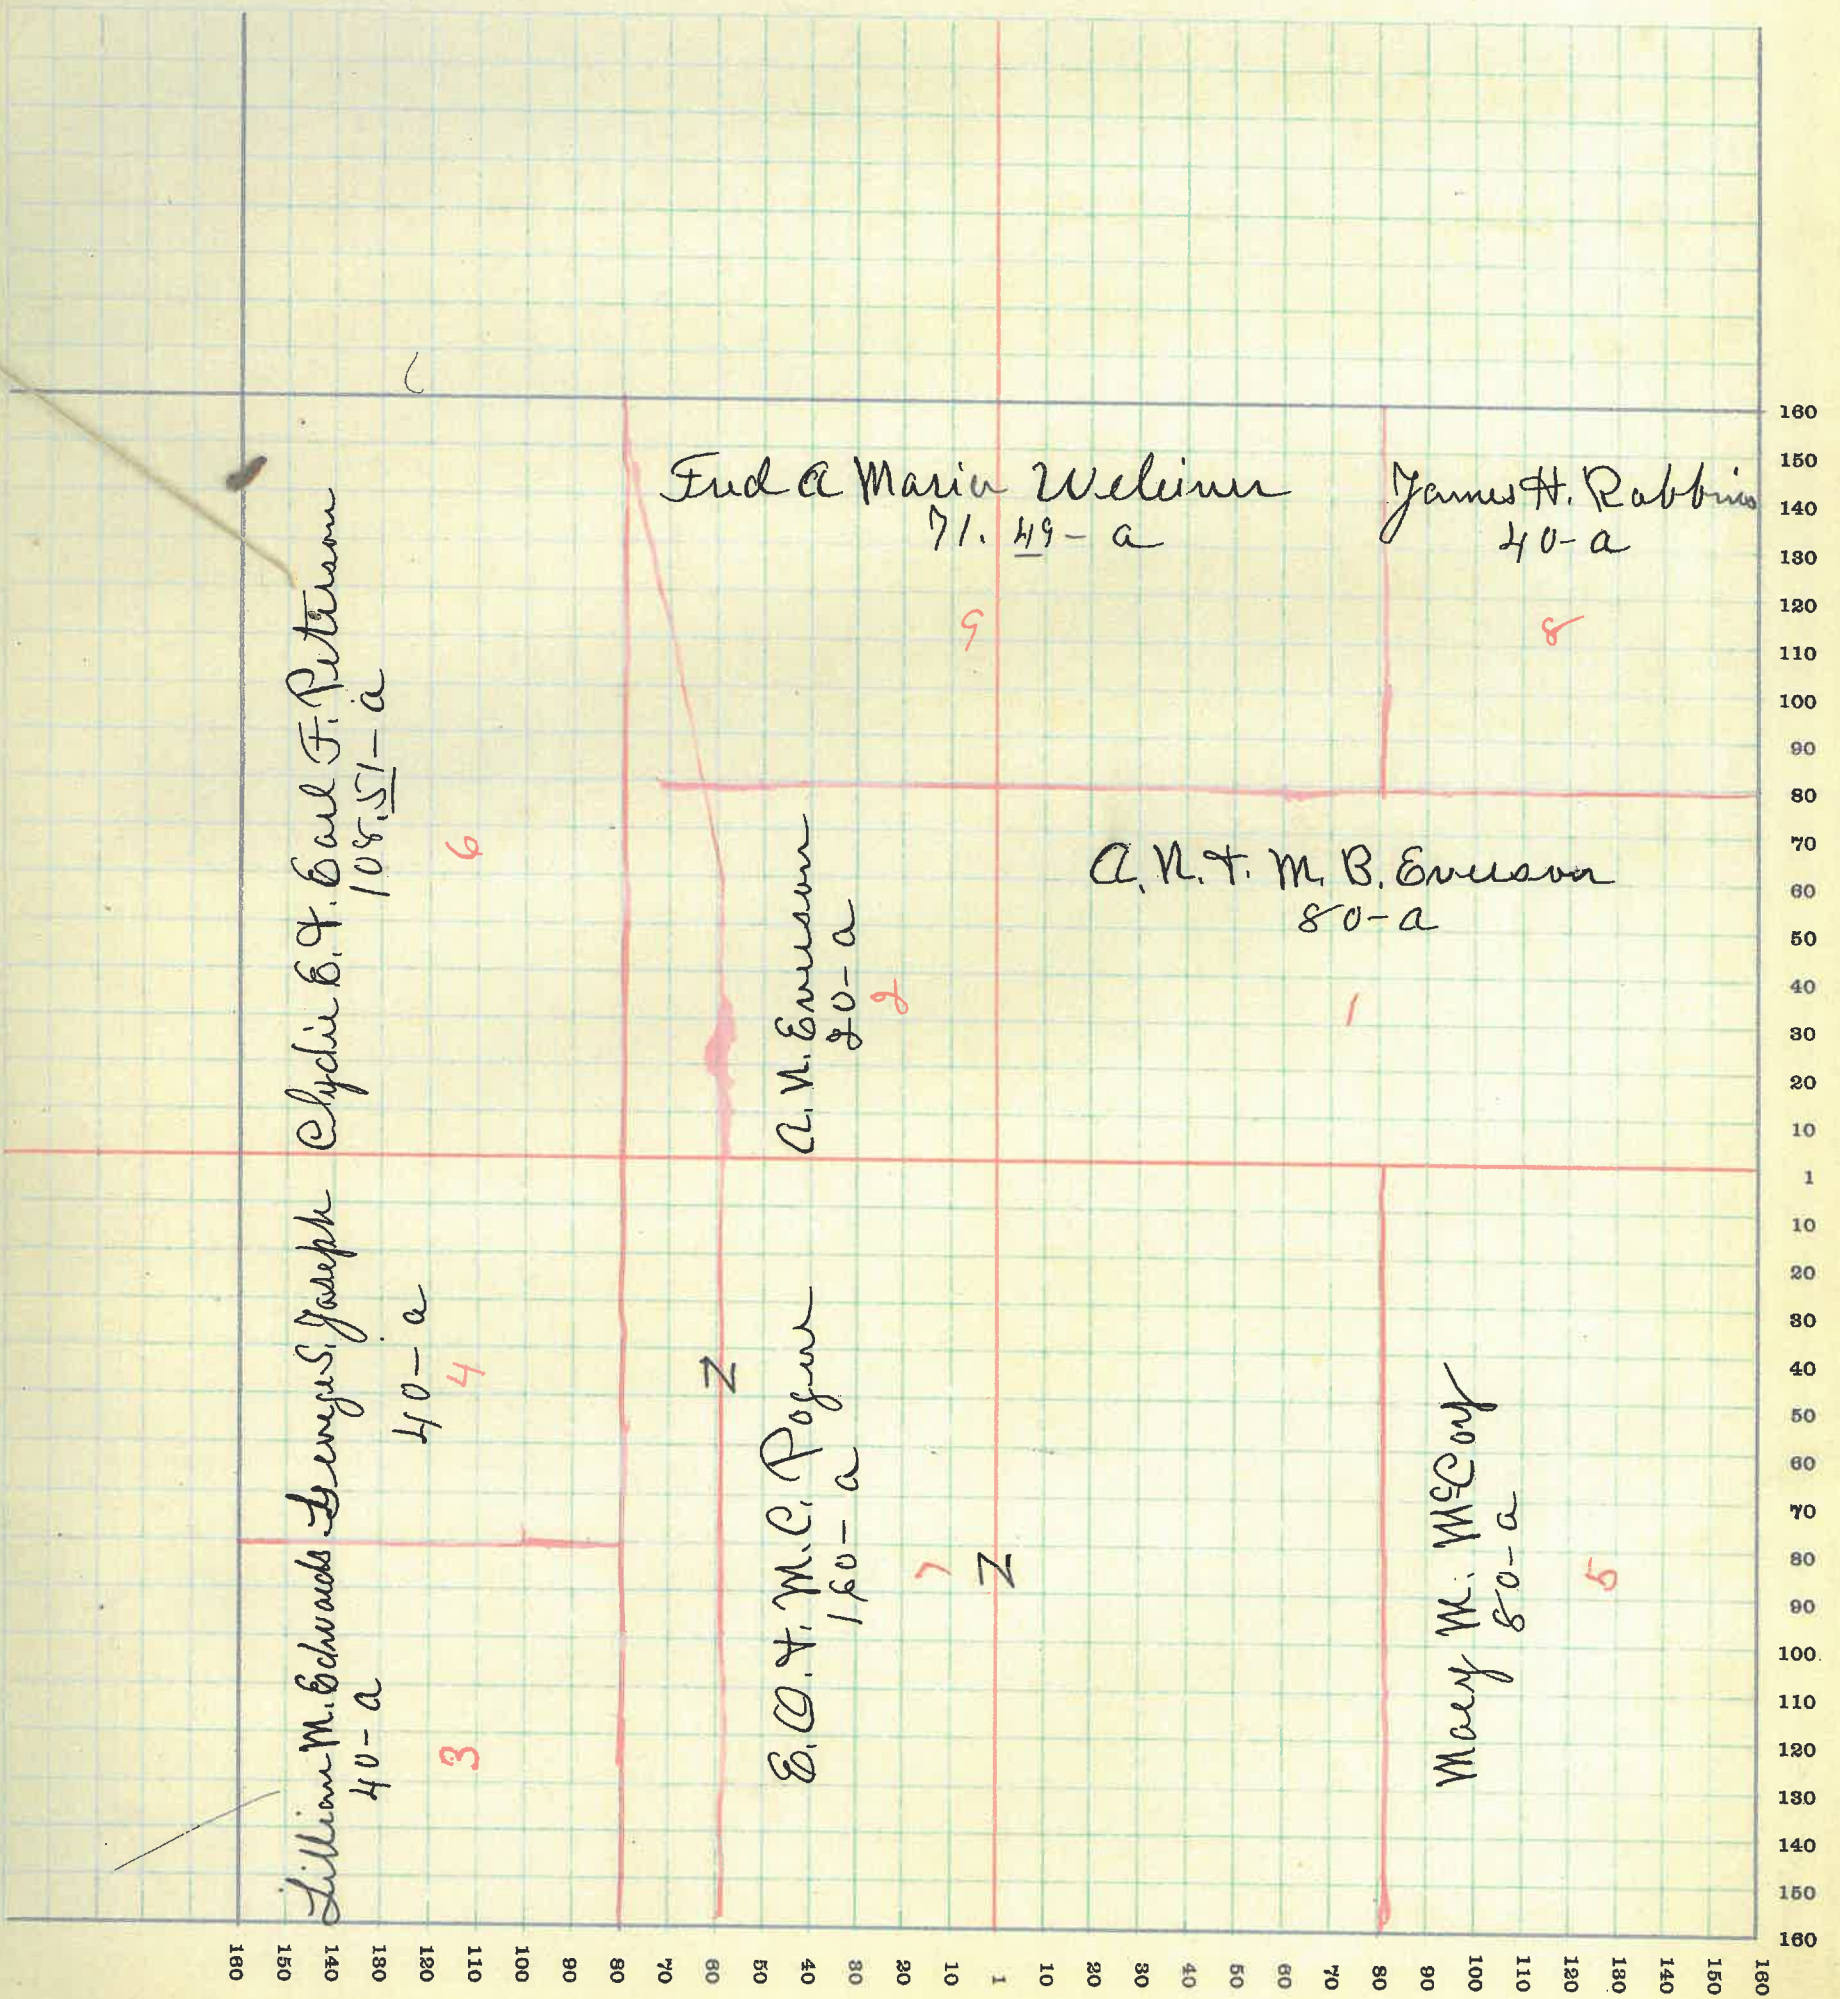 Fred A Marie
71.49-a
9
James H. Robbins
40-a
8
Clydie E. & Earl F. Peterson
108.51-a
6
A. N. Everson
20-a
2
A. N. & M. B. Everson
80-a
1
George S. Joseph
40-a
4
Lillian M. Edwards
40-a
3
E. O. & M. C. Pogue
160-a
7
Z
Z
Mary M. McCoy
80-a
5
160
150
140
130
120
110
100
90
80
70
60
50
40
30
20
10
1
10
20
30
40
50
60
70
80
90
100
110
120
130
140
150
160
160 150 140 130 120 110 100 90 80 70 60 50 40 30 20 10 1 10 20 30 40 50 60 70 80 90 100 110 120 130 140 150 160